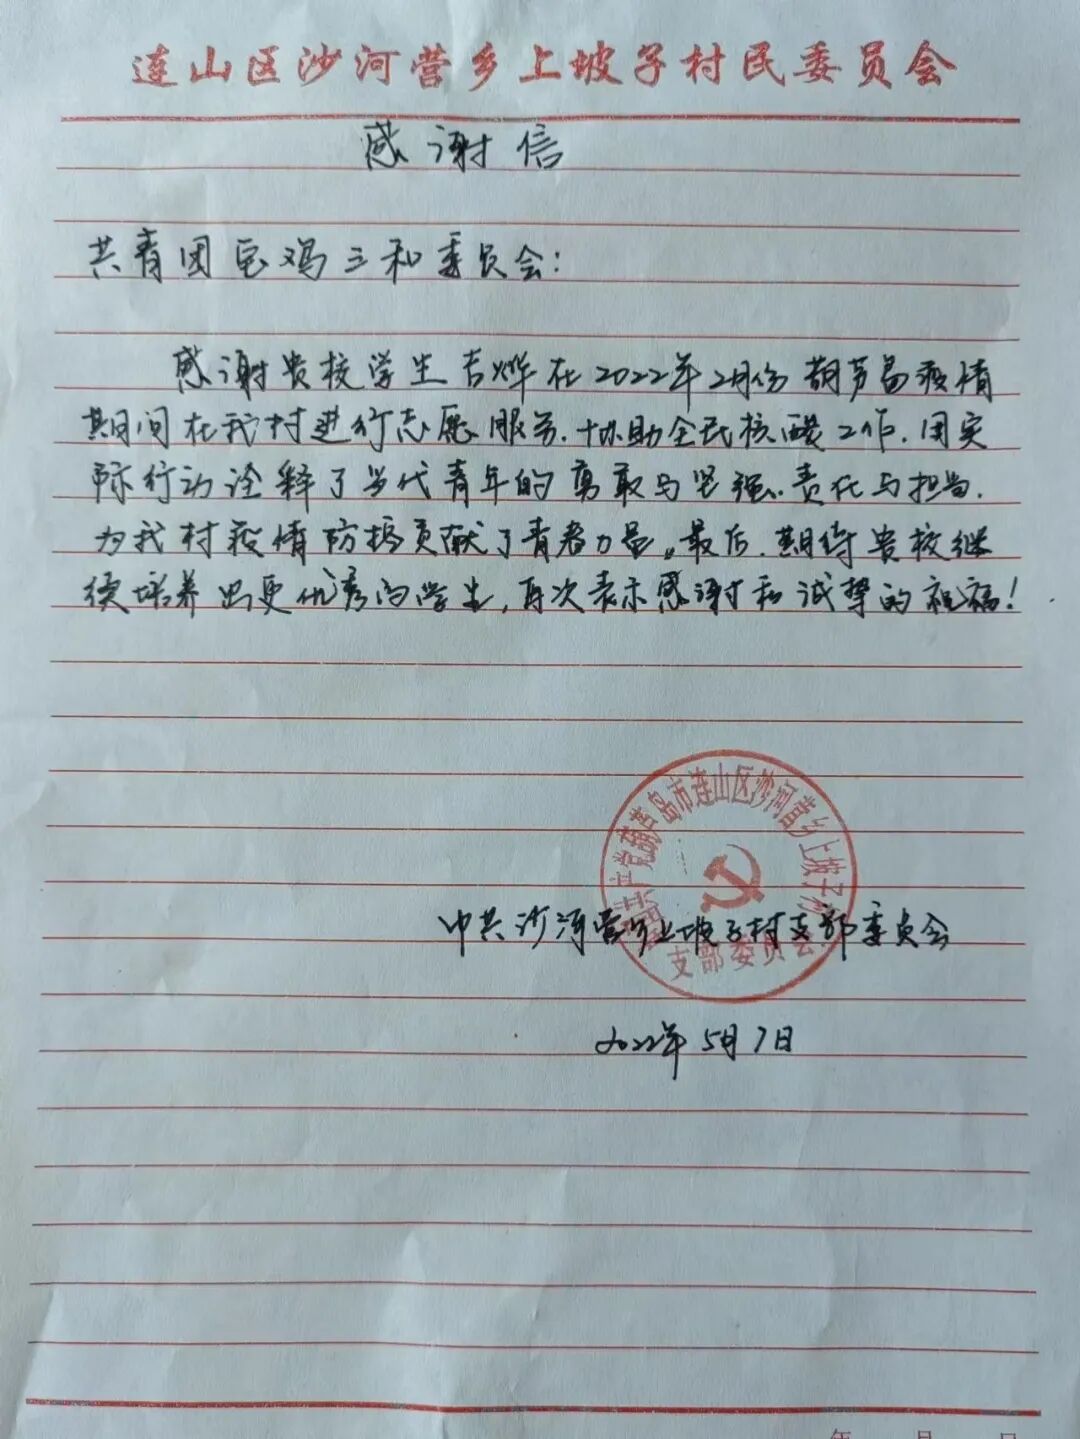 连山区沙河营乡上坡子村民委员会
感谢信
共青团宝鸡三和委员会：
感谢贵校学生吉烨在2022年2月份葫芦岛疫情
期间在我村进行志愿服务，协助全民核酸工作，用实
际行动诠释了当代青年的勇敢与坚强、责任与担当，
为我村疫情防护贡献了青春力量。最后，期待贵校继
续培养出更优秀的学生，再次表示感谢和诚挚的祝福！
中国共产党葫芦岛市连山区沙河营乡上坡子村
支部委员会
中共沙河营乡上坡子村支部委员会
2022年5月7日
年 月 日